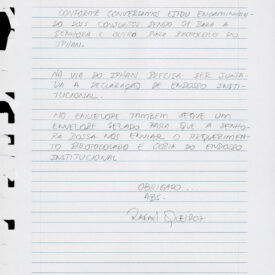 CONFORME CONVERSAMOS ESTOU ENCAMINHAN-
DO DOIS CONJUNTOS SENDO 01 PARA A
SENHORA E OUTRO PARA PROTOCOLO DO
IPHAN.
NA VIA DO IPHAN PRECISA SER JUNTA-
DA A DECLARAÇÃO DE ENDOSSO INSTI-
TUCIONAL.
NO ENVELOPE TAMBÉM SEGUE UM
ENVELOPE SELADO PARA QUE A SENHO-
RA POSSA NOS ENVIAR O REQUERIMEN-
TO PROTOCOLADO E COPIA DO ENDOSSO
INSTITUCIONAL
OBRIGADO.
ABS.
RAFAEL QUEIROZ